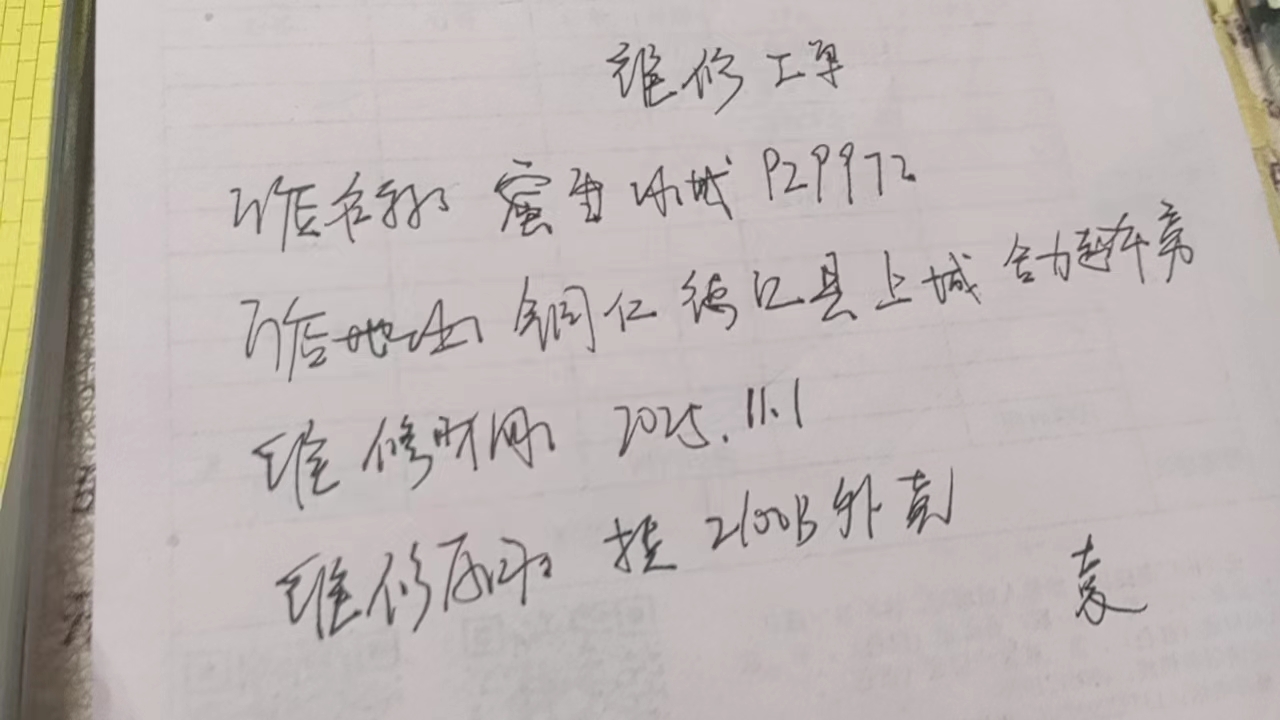 维修工单
门店名称: 蜜雪冰城 P29972
门店地址: 铜仁德江县上城合力超市旁
维修时间: 2025.11.1
维修原因: 换2100B外壳
袁